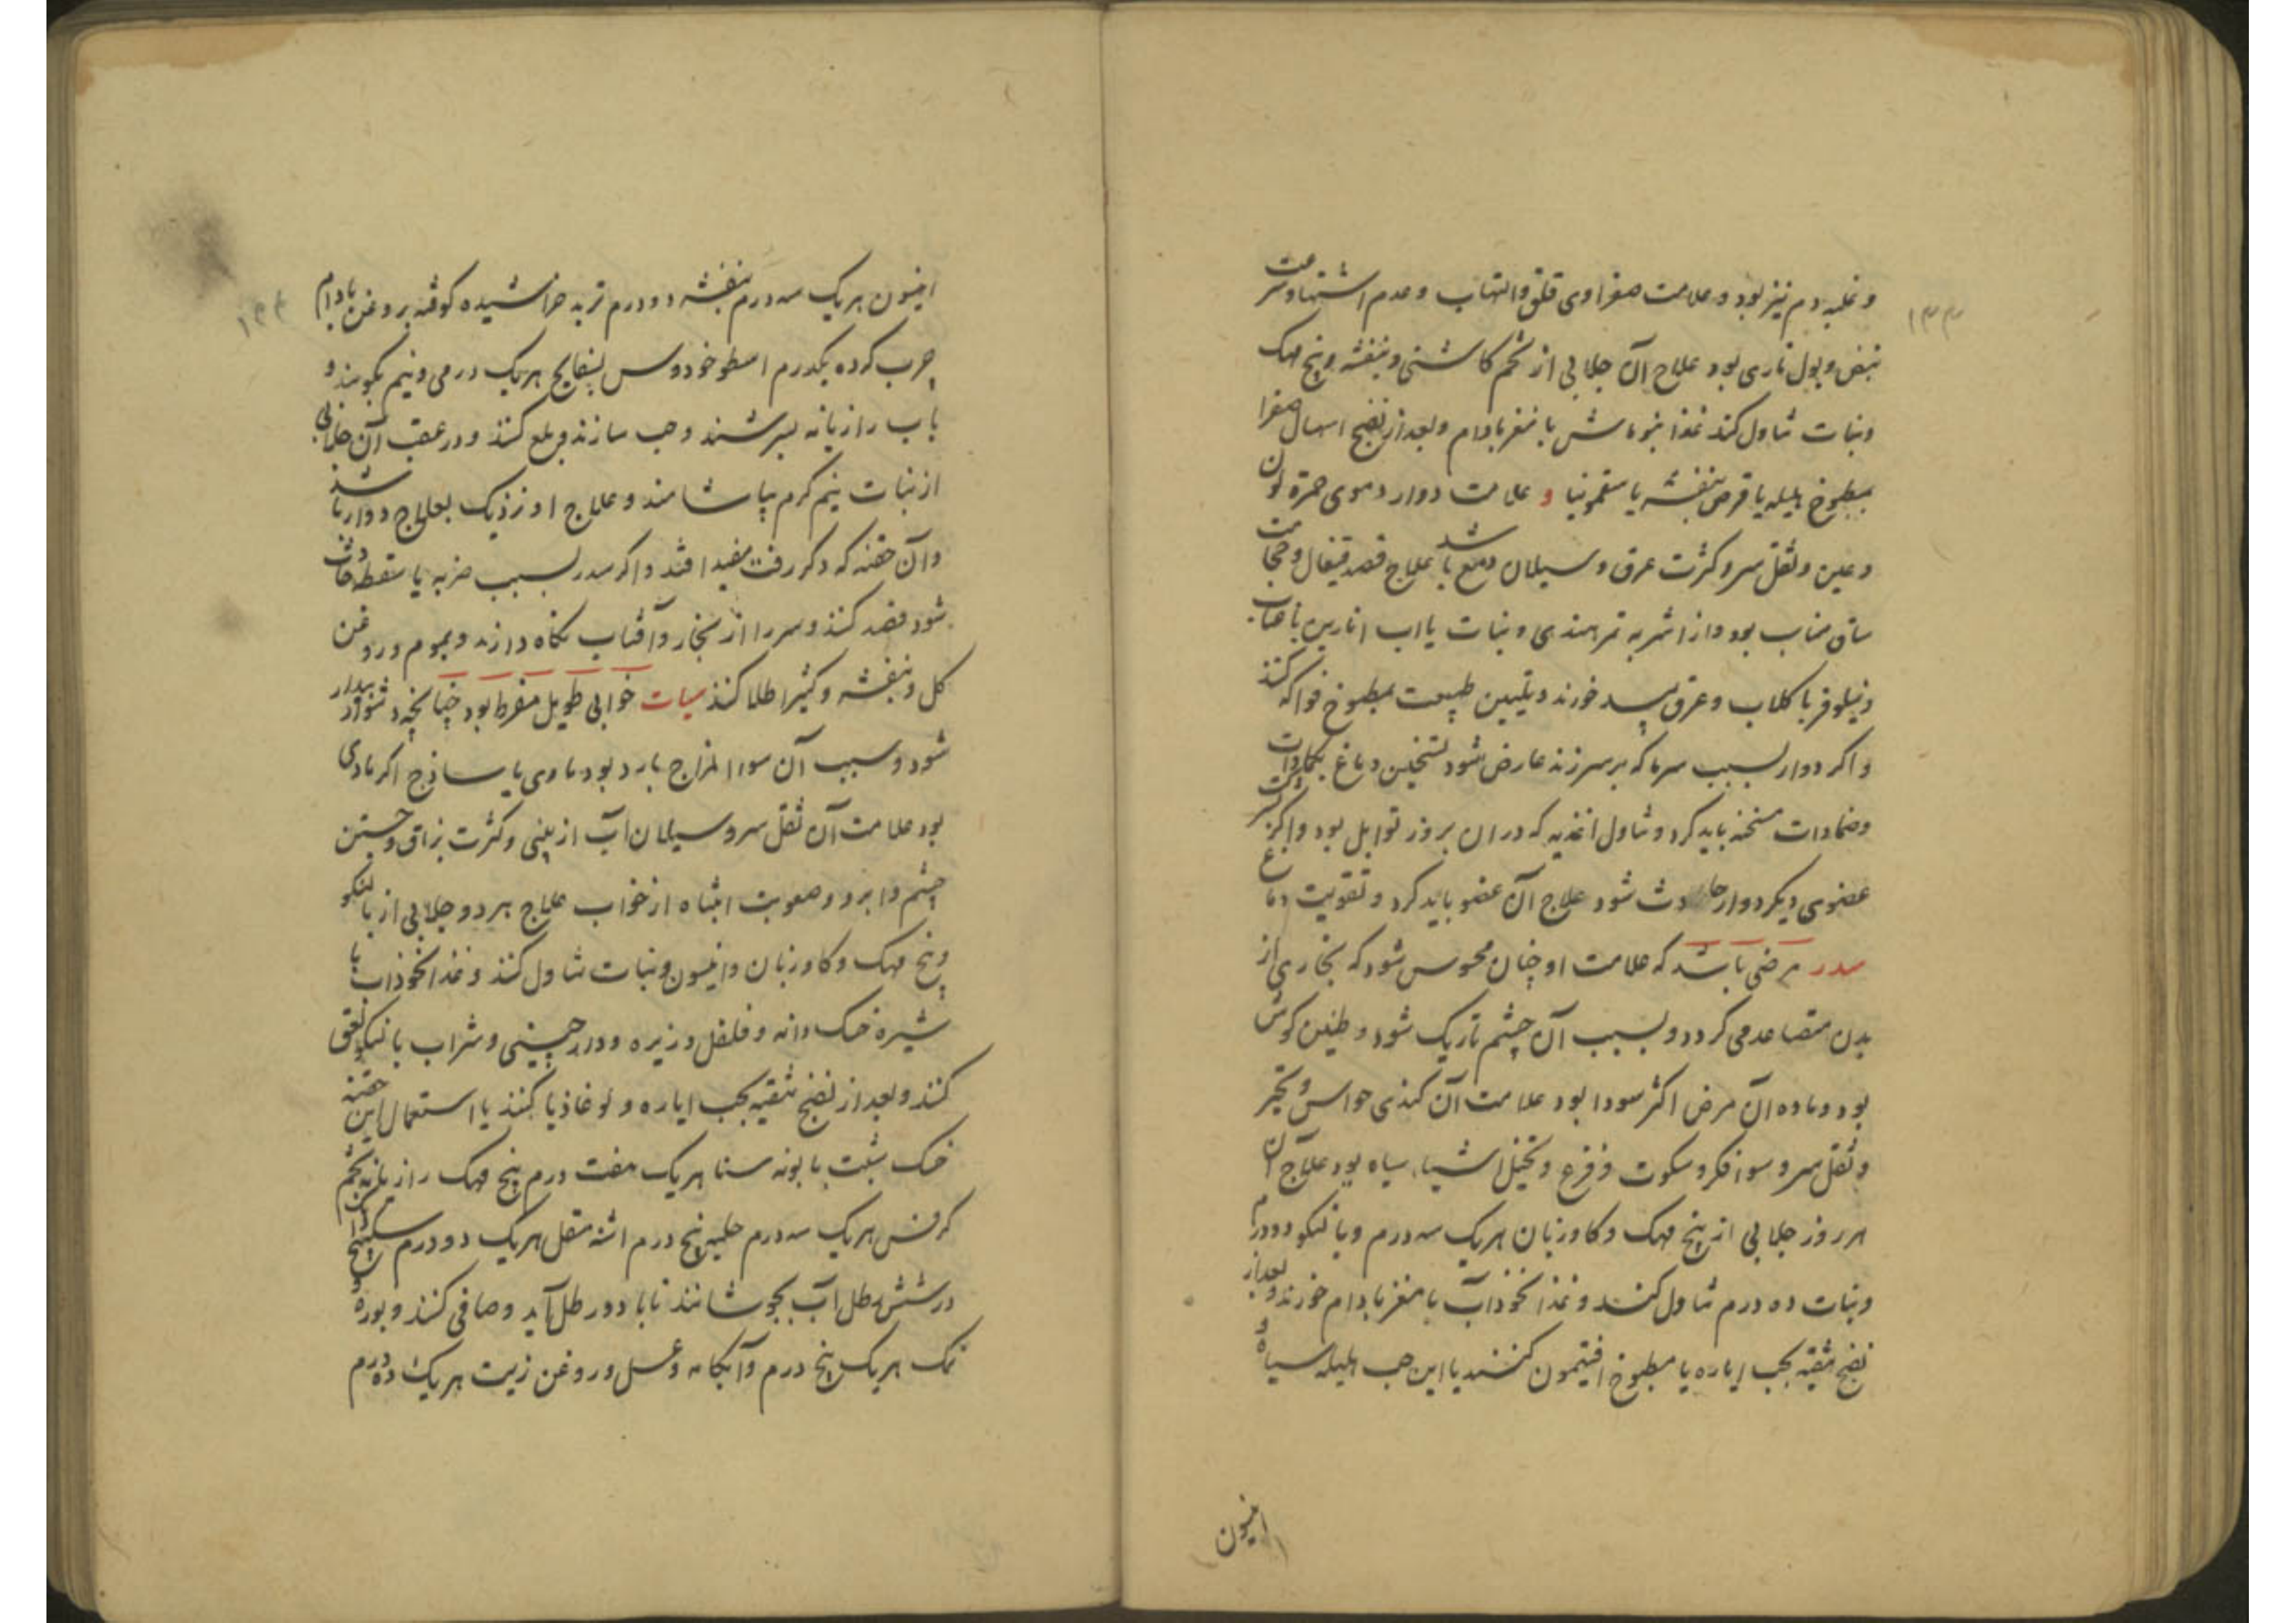 ۱۳۳
و غلبه دم نیز بود و علامت صفراوی قلق و التهاب و عدم اشتها و سرعت
نبض و بول ناری بود علاج آن جلابی از تخم کاشنی و بنفشه و پنج مهک
و نبات تناول کند غذا نبوماش با مغز بادام و بعد از نضج اسهال صفرا
بمطبوخ هلیله یا قرص بنفشه یا سقمونیا و علامت دوار دموی حمرة لون
و عین و ثقل سر و کثرت عرق و سیلان دمع باشد علاج فصد قیفال و حجامت
ساق مناسب بود و از اشربه تمر هندی و نبات یا اب انارین با عناب
و نیلوفر با کلاب و عرق بید خورند و تلیین طبیعت بمطبوخ فواکه کنند
و اکر دوار بسبب سرما که بر سر زند عارض شود تسخین دماغ بکمادات
و ضمادات مسخنه باید کرد و تناول اغذیه که در ان بروز توابل بود و اکر بشرکت
عضوی دیکر دوار حادث شود علاج آن عضو باید کرد و تقویت دماغ
سدر مرضی باشد که علامت او چنان محسوس شود که بخاری از
بدن متصاعد می کردد و بسبب آن چشم تاریک شود و طنین کوش
بود و ماده آن مرض اکثر سودا بود علامت آن کندی حواس و تحیر
و ثقل سر و سوا فکر و سکوت و فزع و تخیل اشیاء سیاه بود علاج آن
هر روز جلابی از پنج مهک و کاوزبان هریک سه درم و بانکو دو درم
و نبات ده درم تناول کنند و غذا نخوداب با مغز بادام خورند و بعد از
نضج تنقیه بحب ایاره یا مطبوخ افتیمون کنند یا این حب هلیله سیاه و
انیسون
۱۳۴
انیسون هریک سه درم بنفشه دو درم تربد خراشیده کوفته بروغن بادام
چرب کرده یکدرم اسطوخودوس بسفایج هریک درمی و نیم بکوبند و
باب رازیانه بسرشند و حب سازند و بلع کنند و در عقب آن جلابی
از نبات نیم کرم بیاشامند و علاج او نزدیک بعلاج دوار باشد
و آن حقنه که ذکر رفت مفید افتد و اکر سدر بسبب ضربه یا سقطه حادث
شود فصد کنند و سر را از بخار و آفتاب نکاه دارند و بموم و روغن
کل و بنفشه و کتیرا طلا کنند سبات خوابی طویل مفرط بود چنانچه دشوار بیدار
شود و سبب آن سوا المزاج بارد بود مادی یا ساذج اکر مادی
بود علامت آن ثقل سر و سیلان آب از بینی و کثرت بزاق و جستن
چشم و ابرو و صعوبت انتباه از خواب علاج هر دو جلابی از بالنکو
و پنج مهک و کاوزبان و انیسون و نبات تناول کنند و غذا نخوداب با
شیره خسک دانه و فلفل و زیره و دارچینی و شراب بانکو لعق
کنند و بعد از نضج تنقیه بحب ایاره و لوغاذیا کنند یا استعمال این حقنه
خسک شبت بابونه سنا هریک هفت درم پنج مهک رازیانه تخم
کرفس هریک سه درم حلبه پنج درم اشه مقل هریک دو درم سکبینج
در شش رطل آب بجوشانند تا با دو رطل آید و صافی کنند و بوره و
نمک هریک پنج درم و آبکامه و عسل و روغن زیت هریک ده درم